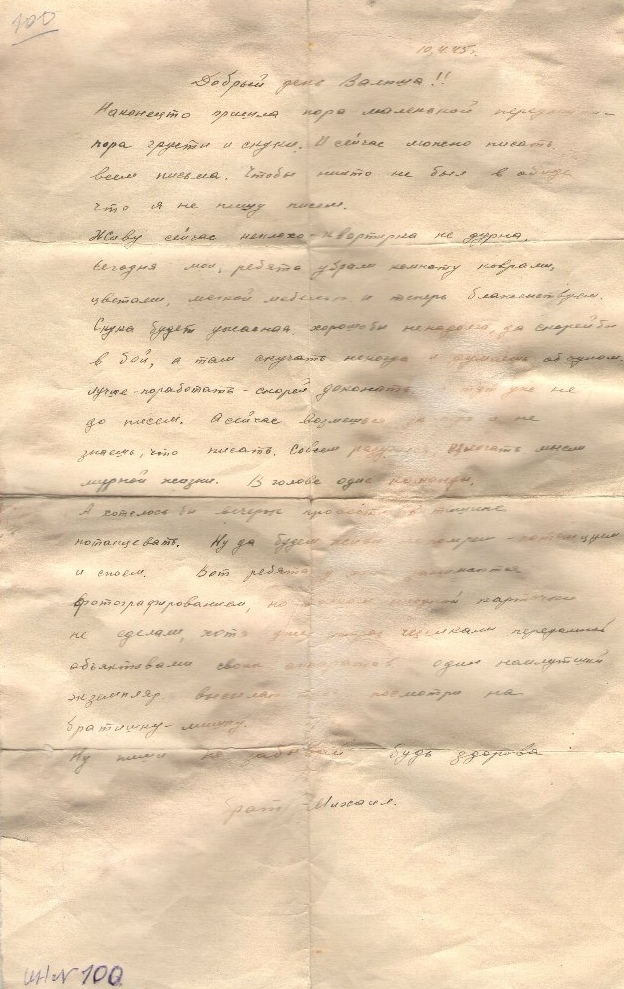 100
10.4.45.
Добрый день Валюша!!
Наконец то пришла пора маленькой
пора грусти и скуки. И сейчас можно писать
всем письма. Чтобы никто не был в обиде
что я не пишу писем.
Живу сейчас неплохо - квартирка не дурна,
Сегодня мои, ребята убрали комнату коврами,
цветами, мягкой мебелью и теперь блаженствуем.
Скука будет ужасная хорошо бы ненадолго, да скорей бы
в бой, а там скучать некогда и думаешь об одном.
лучше - поработать - скорей доконать уже не
до писем. А сейчас возмешься не
знаешь, что писать. Совсем излагать мысли
мирной жизни. В голове одне команды.
А хотелось бы вечерок провести в тишине
потанцевать. Ну да будем потанцуем
и споем. Вот ребята
фотографированием, но карточки
не сделали, хотя уже щелкали
объективами своих аппаратов один наилучший
экземпляр высылаю посмотри на
братишку - Мишку.
Ну пиши не забывай будь здорова
брат - Михаил.
ИН-N 100